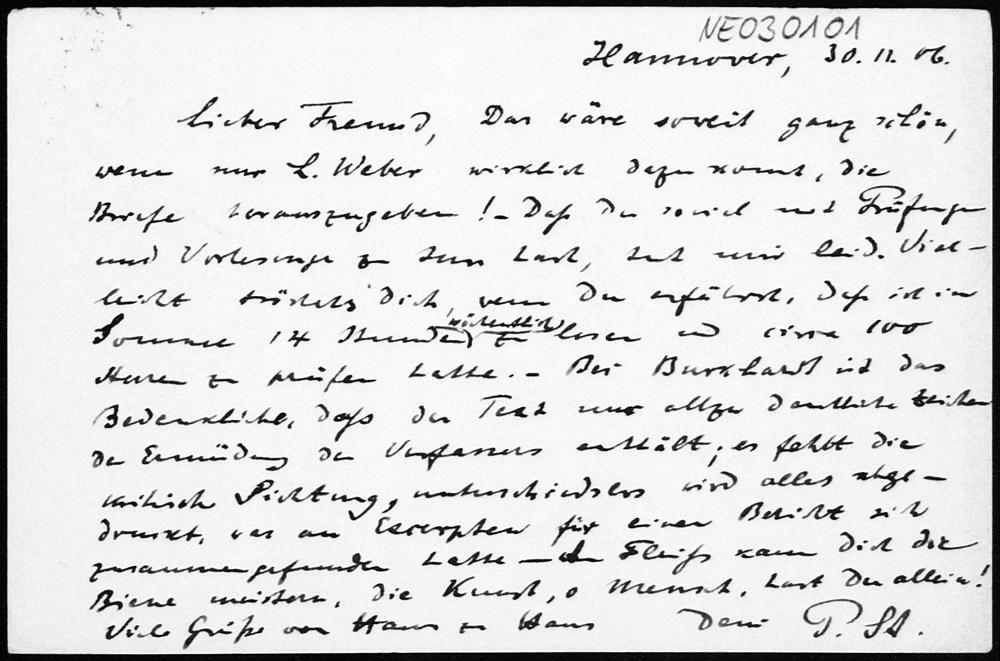 NE030101
Hannover, 30. 11. 06.
Lieber Freund, Das wäre soweit ganz schön,
wenn nur H. Weber wirklich dazu kommt, die
Briefe herauszugeben! - Daß Du soviel mit Prüfungen
und Vorlesungen zu tun hast, tut mir leid. Viel-
leicht tröstet's Dich, wenn Du erfährst, daß ich im
Sommer 14 Stunden wöchentlich zu lesen und circa 100
Herren zu prüfen hatte. - Bei Burkhardt ist das
Bedenkliche, daß der Text nur allzu deutliche Zeichen
der Ermüdung des Verfassers enthält; es fehlt die
kritische Sichtung, unterschiedslos wird alles abge-
druckt, was an Excerpten für einen Bericht sich
zusammengefunden hatte - Im Fleiß kann Dich die
Biene meistern, die Kunst, o Mensch, hast Du allein!
Viele Grüße von Haus zu Haus Dein P. St.